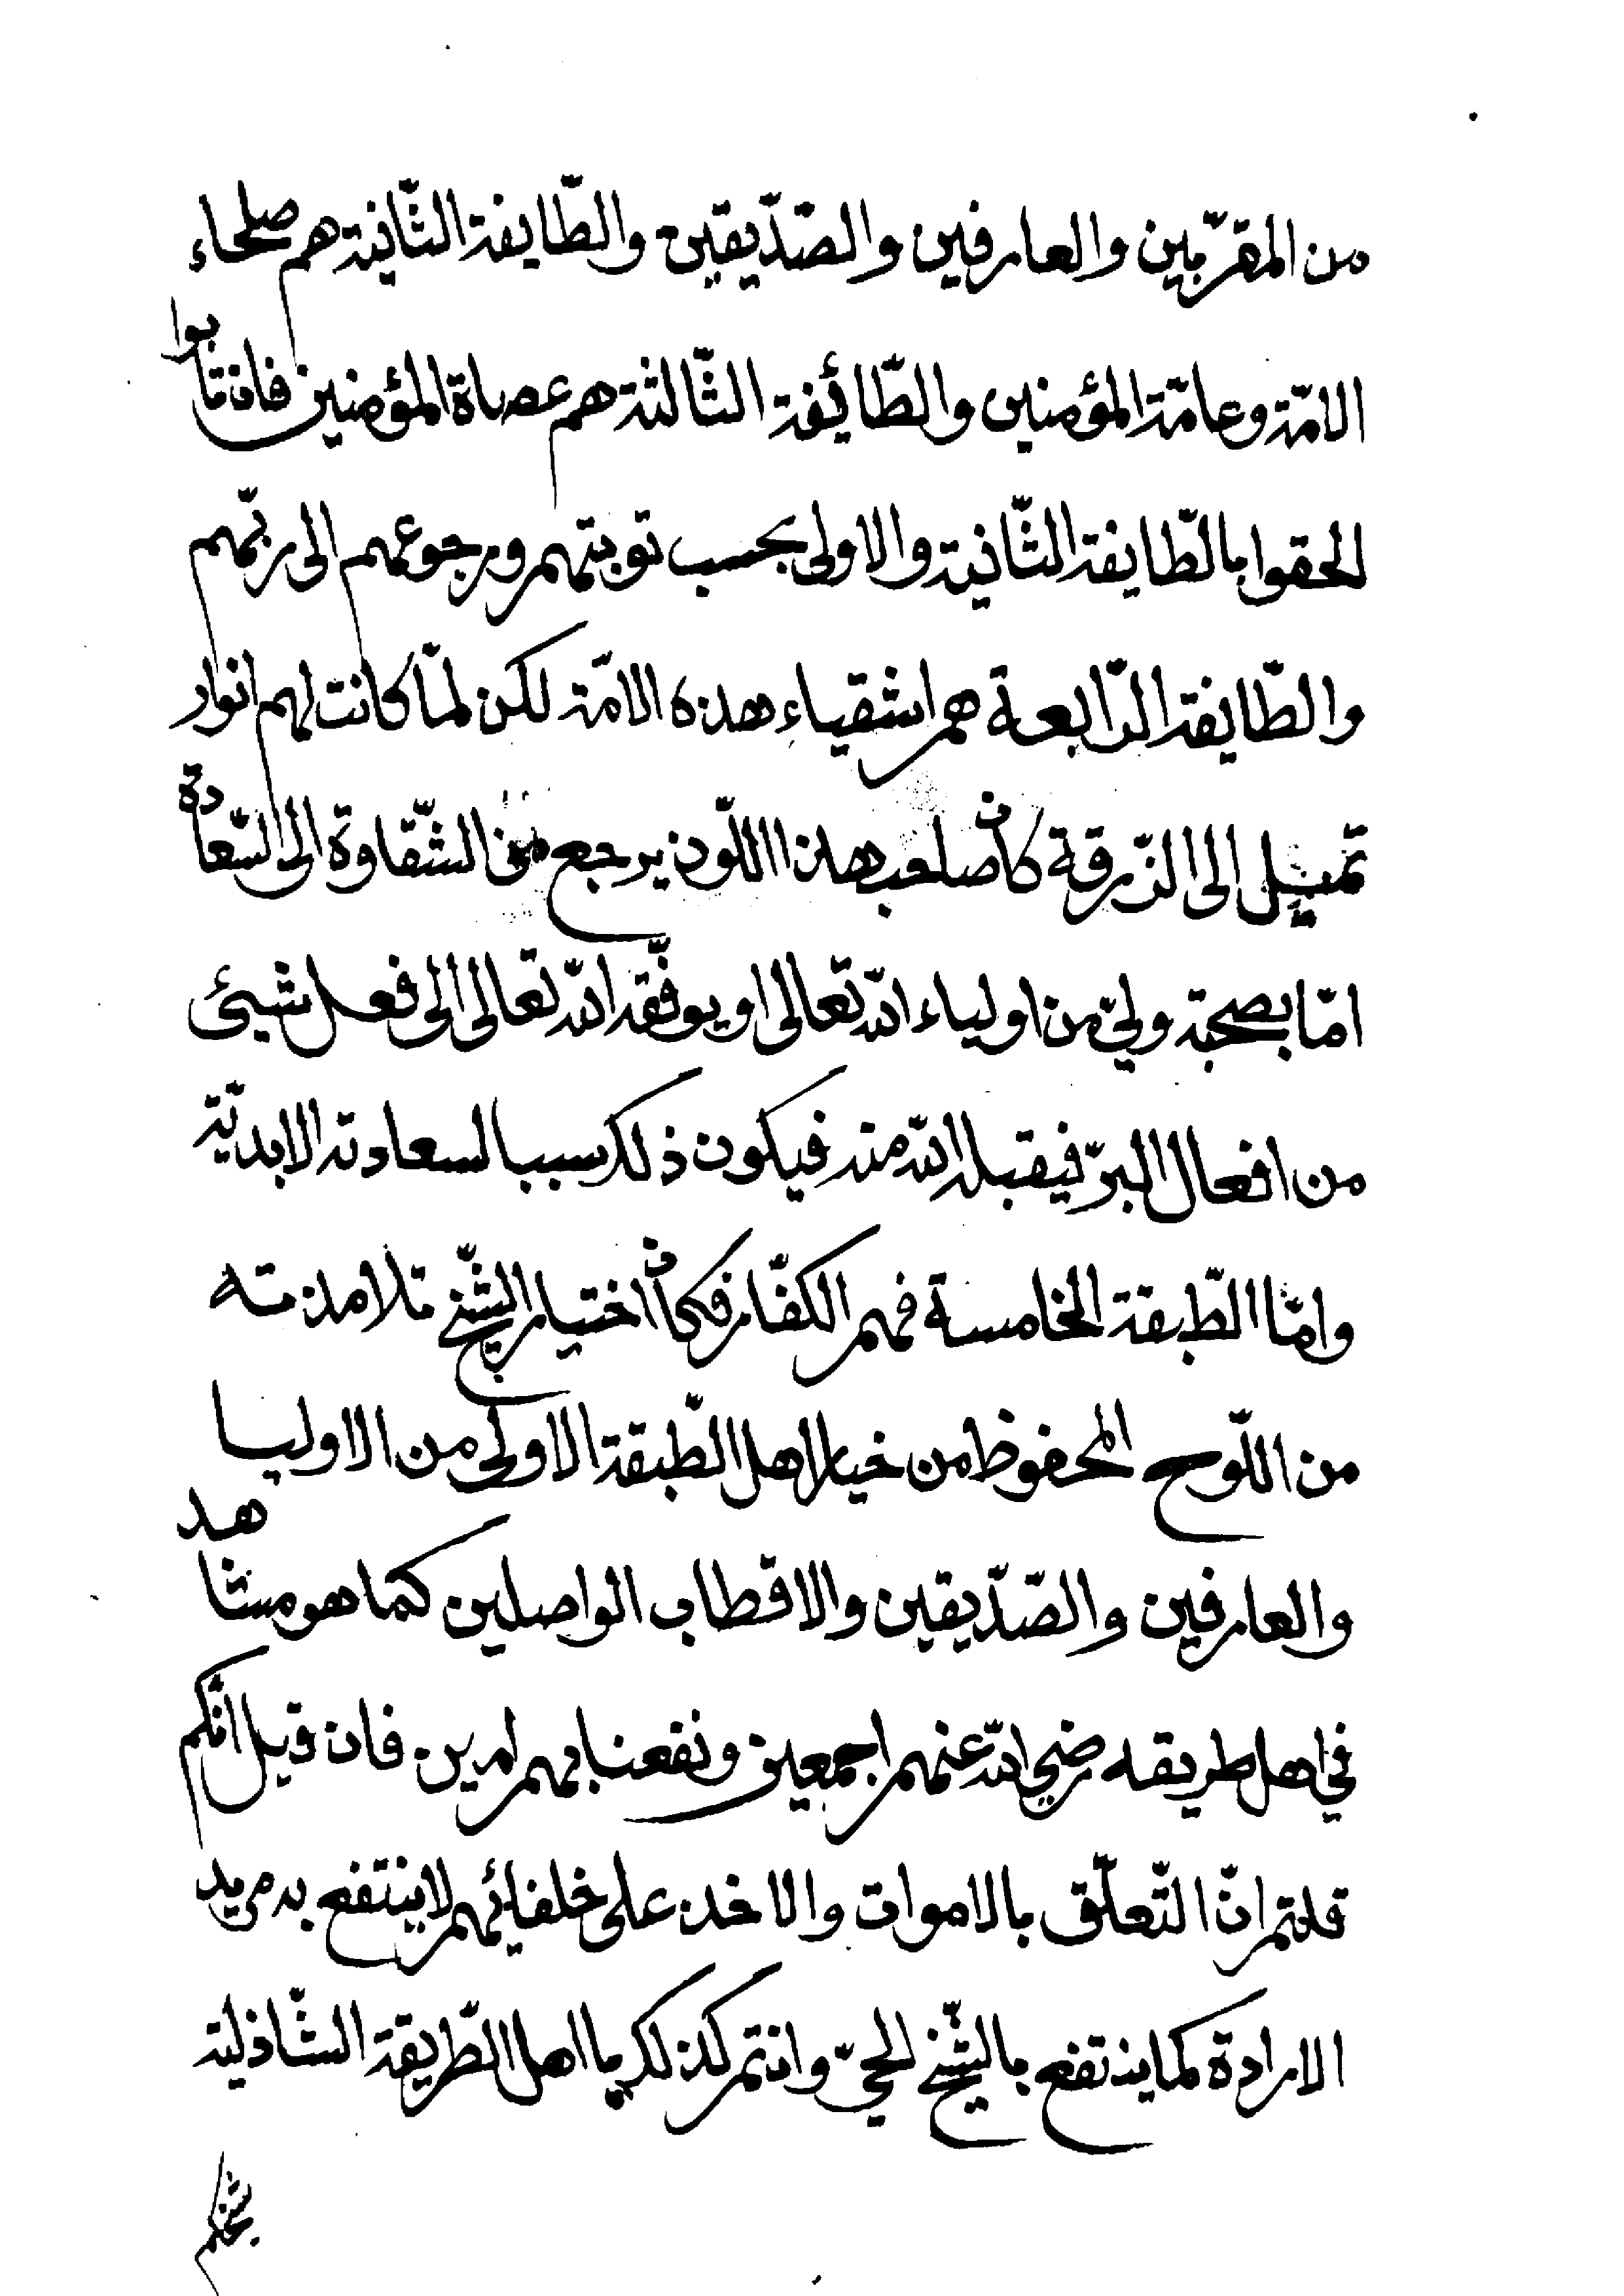 من المقرّبين والعارفين والصّدّيقين والطّايفة الثّانية هم صلحاء
الامّة وعامّة المؤمنين والطّائفة الثّالثة هم عصاة المؤمنين فان تابوا
الحقوا بالطّايفة الثّانية والاولى بحسب توبتهم ورجوعهم الى ربّهم
والطّايفة الرّابعة هم اشقياء هذه الامّة لكن لمّا كانت لهم انوار
تميل الى الزّرقة كان صاحب هذا اللّون يرجع من الشّقاوة الى السّعادة
امّا بصحبة وليّ من اولياء الله تعالى او يوفّقه الله تعالى الى فعل شيئ
من افعال البرّ فيقبله الله منه فيكون ذلك سببا لسعادته الابديّة
وامّا الطّبقة الخامسة فهم الكفّار فكان اختيار الشّيخ تلامذته
من اللّوح المحفوظ من خيار اهل الطّبقة الاولى من الاوليا
والعارفين والصّدّيقين والاقطاب الواصلين كما هو مشاهد
في اهل طريقه رضي الله عنهم اجمعين ونفعنا بهم امين فان قيل انّكم
قلتم انّ التّعلّق بالاموات والاخذ على خلفائهم لا ينتفع به مريد
الارادة كما ينتفع بالشّيخ الحيّ وانتم كذلك يا اهل الطّريقة الشّاذلية
شيخكم